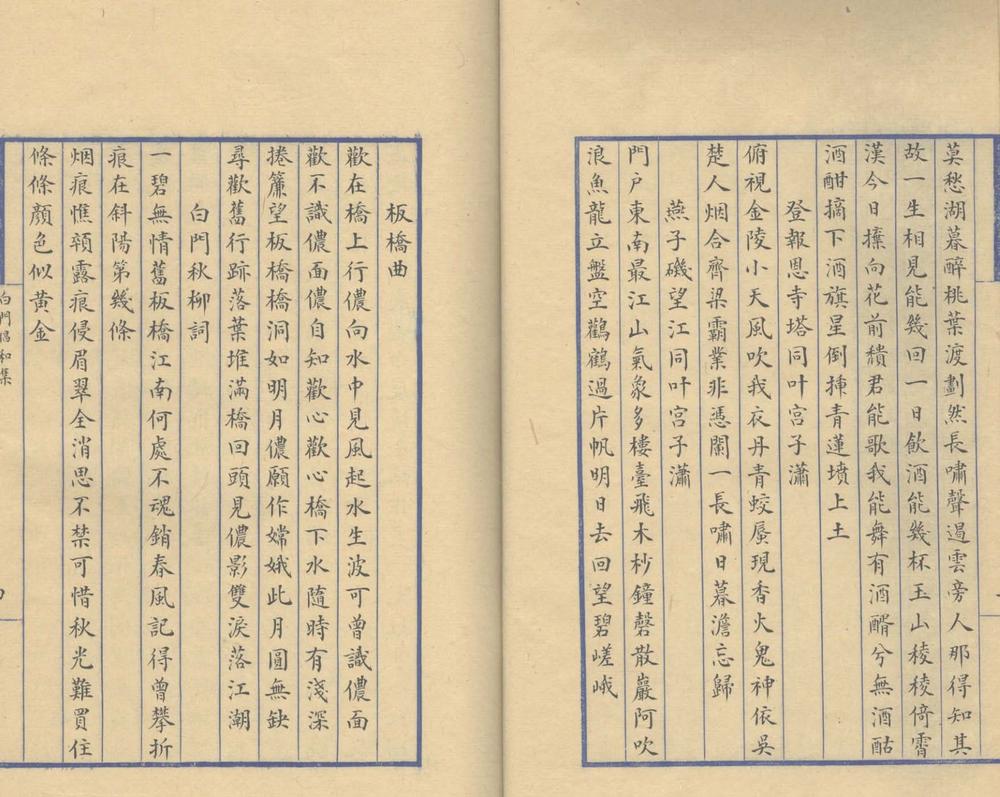 莫愁湖暮醉桃葉渡劃然長嘯聲遏雲旁人那得知其
故一生相見能幾回一日飲酒能幾杯玉山稜稜倚霄
漢今日擡向花前頹君能歌我能舞有酒醑兮無酒酤
酒酣摘下酒旗星倒揷青蓮墳上土
登報恩寺塔同叶宫子瀟
俯視金陵小天風吹我衣丹青蛟蜃現香火鬼神依吳
楚人烟合齊梁霸業非憑闌一長嘯日暮澹忘歸
燕子磯望江同叶宫子瀟
門户東南最江山氣象多樓臺飛木杪鐘磬散巖阿吹
浪魚龍立盤空鸛鶴過片帆明日去回望碧嵯峨
板橋曲
歡在橋上行儂向水中見風起水生波可曾識儂面
歡不識儂面儂自知歡心歡心橋下水隨時有淺深
捲簾望板橋橋洞如明月儂願作嫦娥此月圓無缺
尋歡舊行跡落葉堆滿橋回頭見儂影雙淚落江潮
白門秋柳詞
一碧無情舊板橋江南何處不魂銷春風記得曾攀折
痕在斜陽第幾條
烟痕憔顇露痕侵眉翠全消思不禁可惜秋光難買住
條條顔色似黄金
白門倡和集